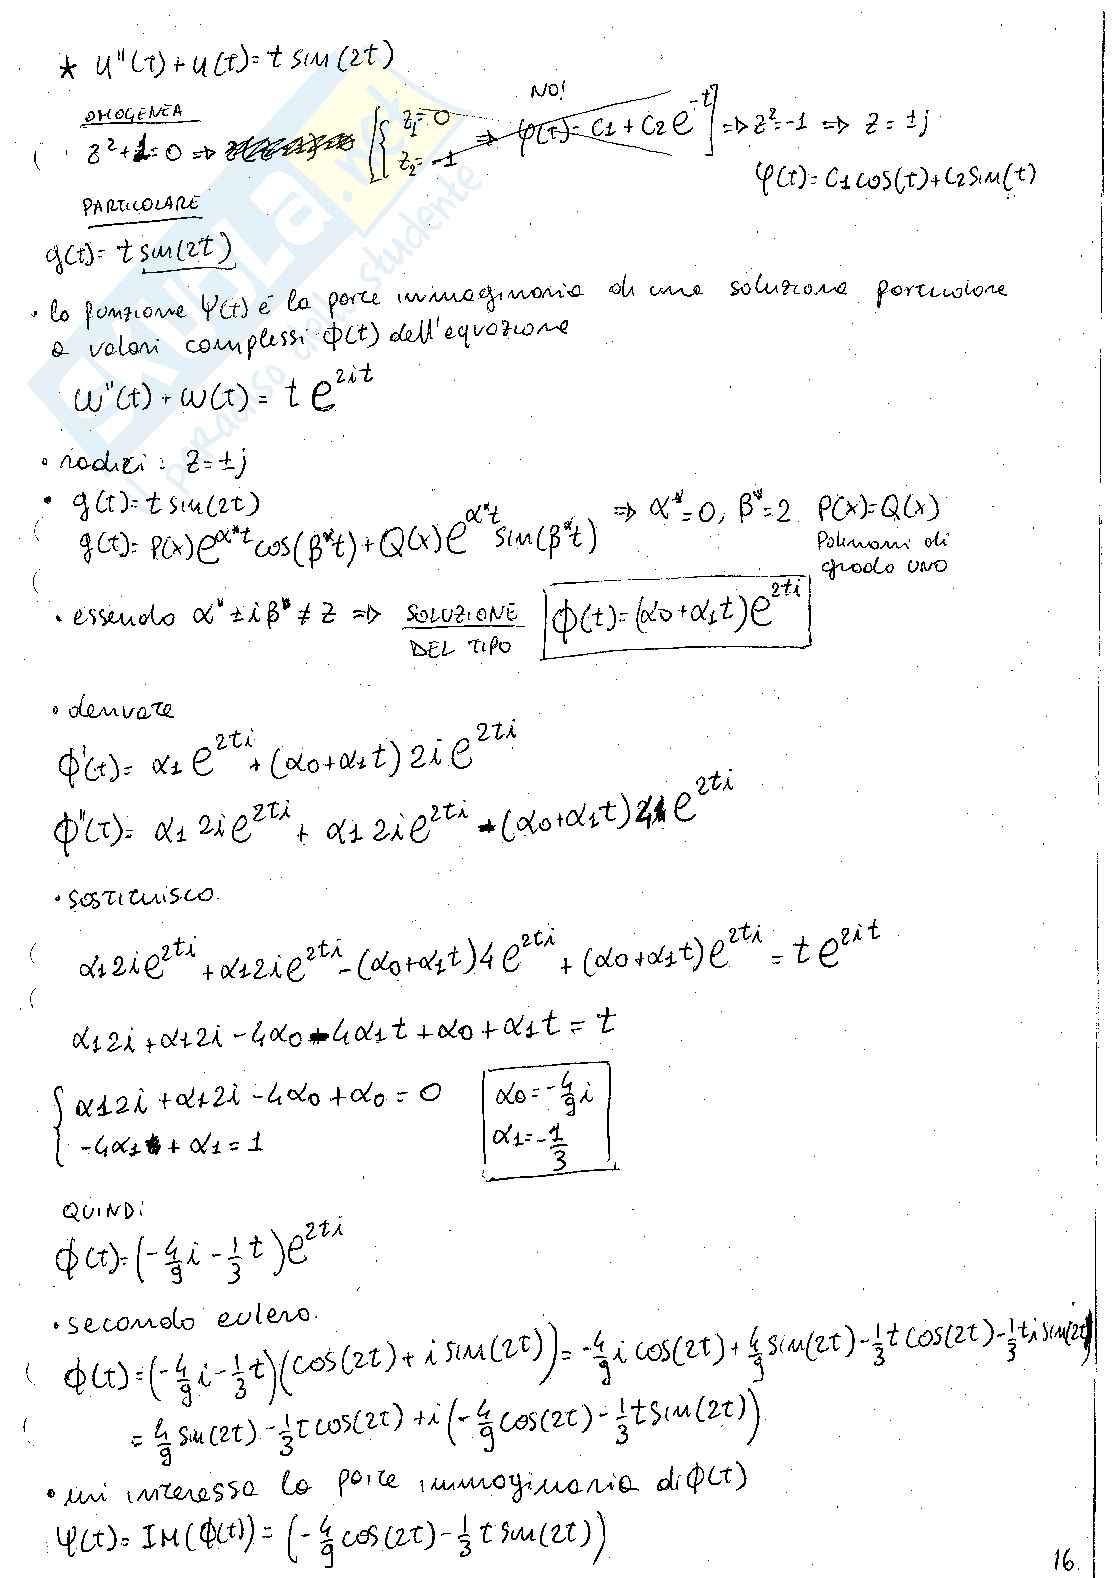 * u''(t)+u(t)= t sin(2t)
OMOGENEA
z²+1=0 ⇒ { z₁=0 z₂=-1 ⇒ φ(t)= c1+c2 e^-t ] ⇒ z²=-1 ⇒ z=±j
NO!
φ(t)= C1cos(t)+C2sin(t)
PARTICOLARE
g(t)= t sin(2t)
• la funzione Ψ(t) è la parte immaginaria di una soluzione particolare
a valori complessi ϕ(t) dell'equazione
w''(t)+w(t)= t e^2it
• radici: z=±j
• g(t)= t sin(2t)
g(t)= P(x)e^α*t cos(β*t)+Q(x)e^α*t sin(β*t) ⇒ α*=0, β*=2 P(x)=Q(x)
Polinomi di
grado UNO
• essendo α*±iβ*≠z ⇒ SOLUZIONE DEL TIPO ϕ(t)=(α0+α1t)e^2ti
• derivate
ϕ'(t)= α1 e^2ti + (α0+α1t) 2i e^2ti
ϕ''(t)= α1 2i e^2ti + α1 2i e^2ti - (α0+α1t)4 e^2ti
• sostituisco
α1 2i e^2ti + α1 2i e^2ti - (α0+α1t)4 e^2ti + (α0+α1t)e^2ti = t e^2it
α1 2i + α1 2i - 4α0 - 4α1t + α0 + α1t = t
{ α1 2i + α1 2i - 4α0 + α0 = 0
-4α1 + α1 = 1
α0=-4/9 i
α1=-1/3
QUINDI
ϕ(t)=(-4/9 i - 1/3 t)e^2ti
• secondo eulero.
ϕ(t)=(-4/9 i - 1/3 t)(cos(2t)+ i sin(2t))= -4/9 i cos(2t)+ 4/9 sin(2t) - 1/3 t cos(2t) - 1/3 t i sin(2t)
= 4/9 sin(2t) - 1/3 t cos(2t) + i(-4/9 cos(2t) - 1/3 t sin(2t))
• mi interessa la parte immaginaria di ϕ(t)
φ(t)= IM(ϕ(t))= (-4/9 cos(2t) - 1/3 t sin(2t))
16.
SKUOLA.net
il paradiso dello studente